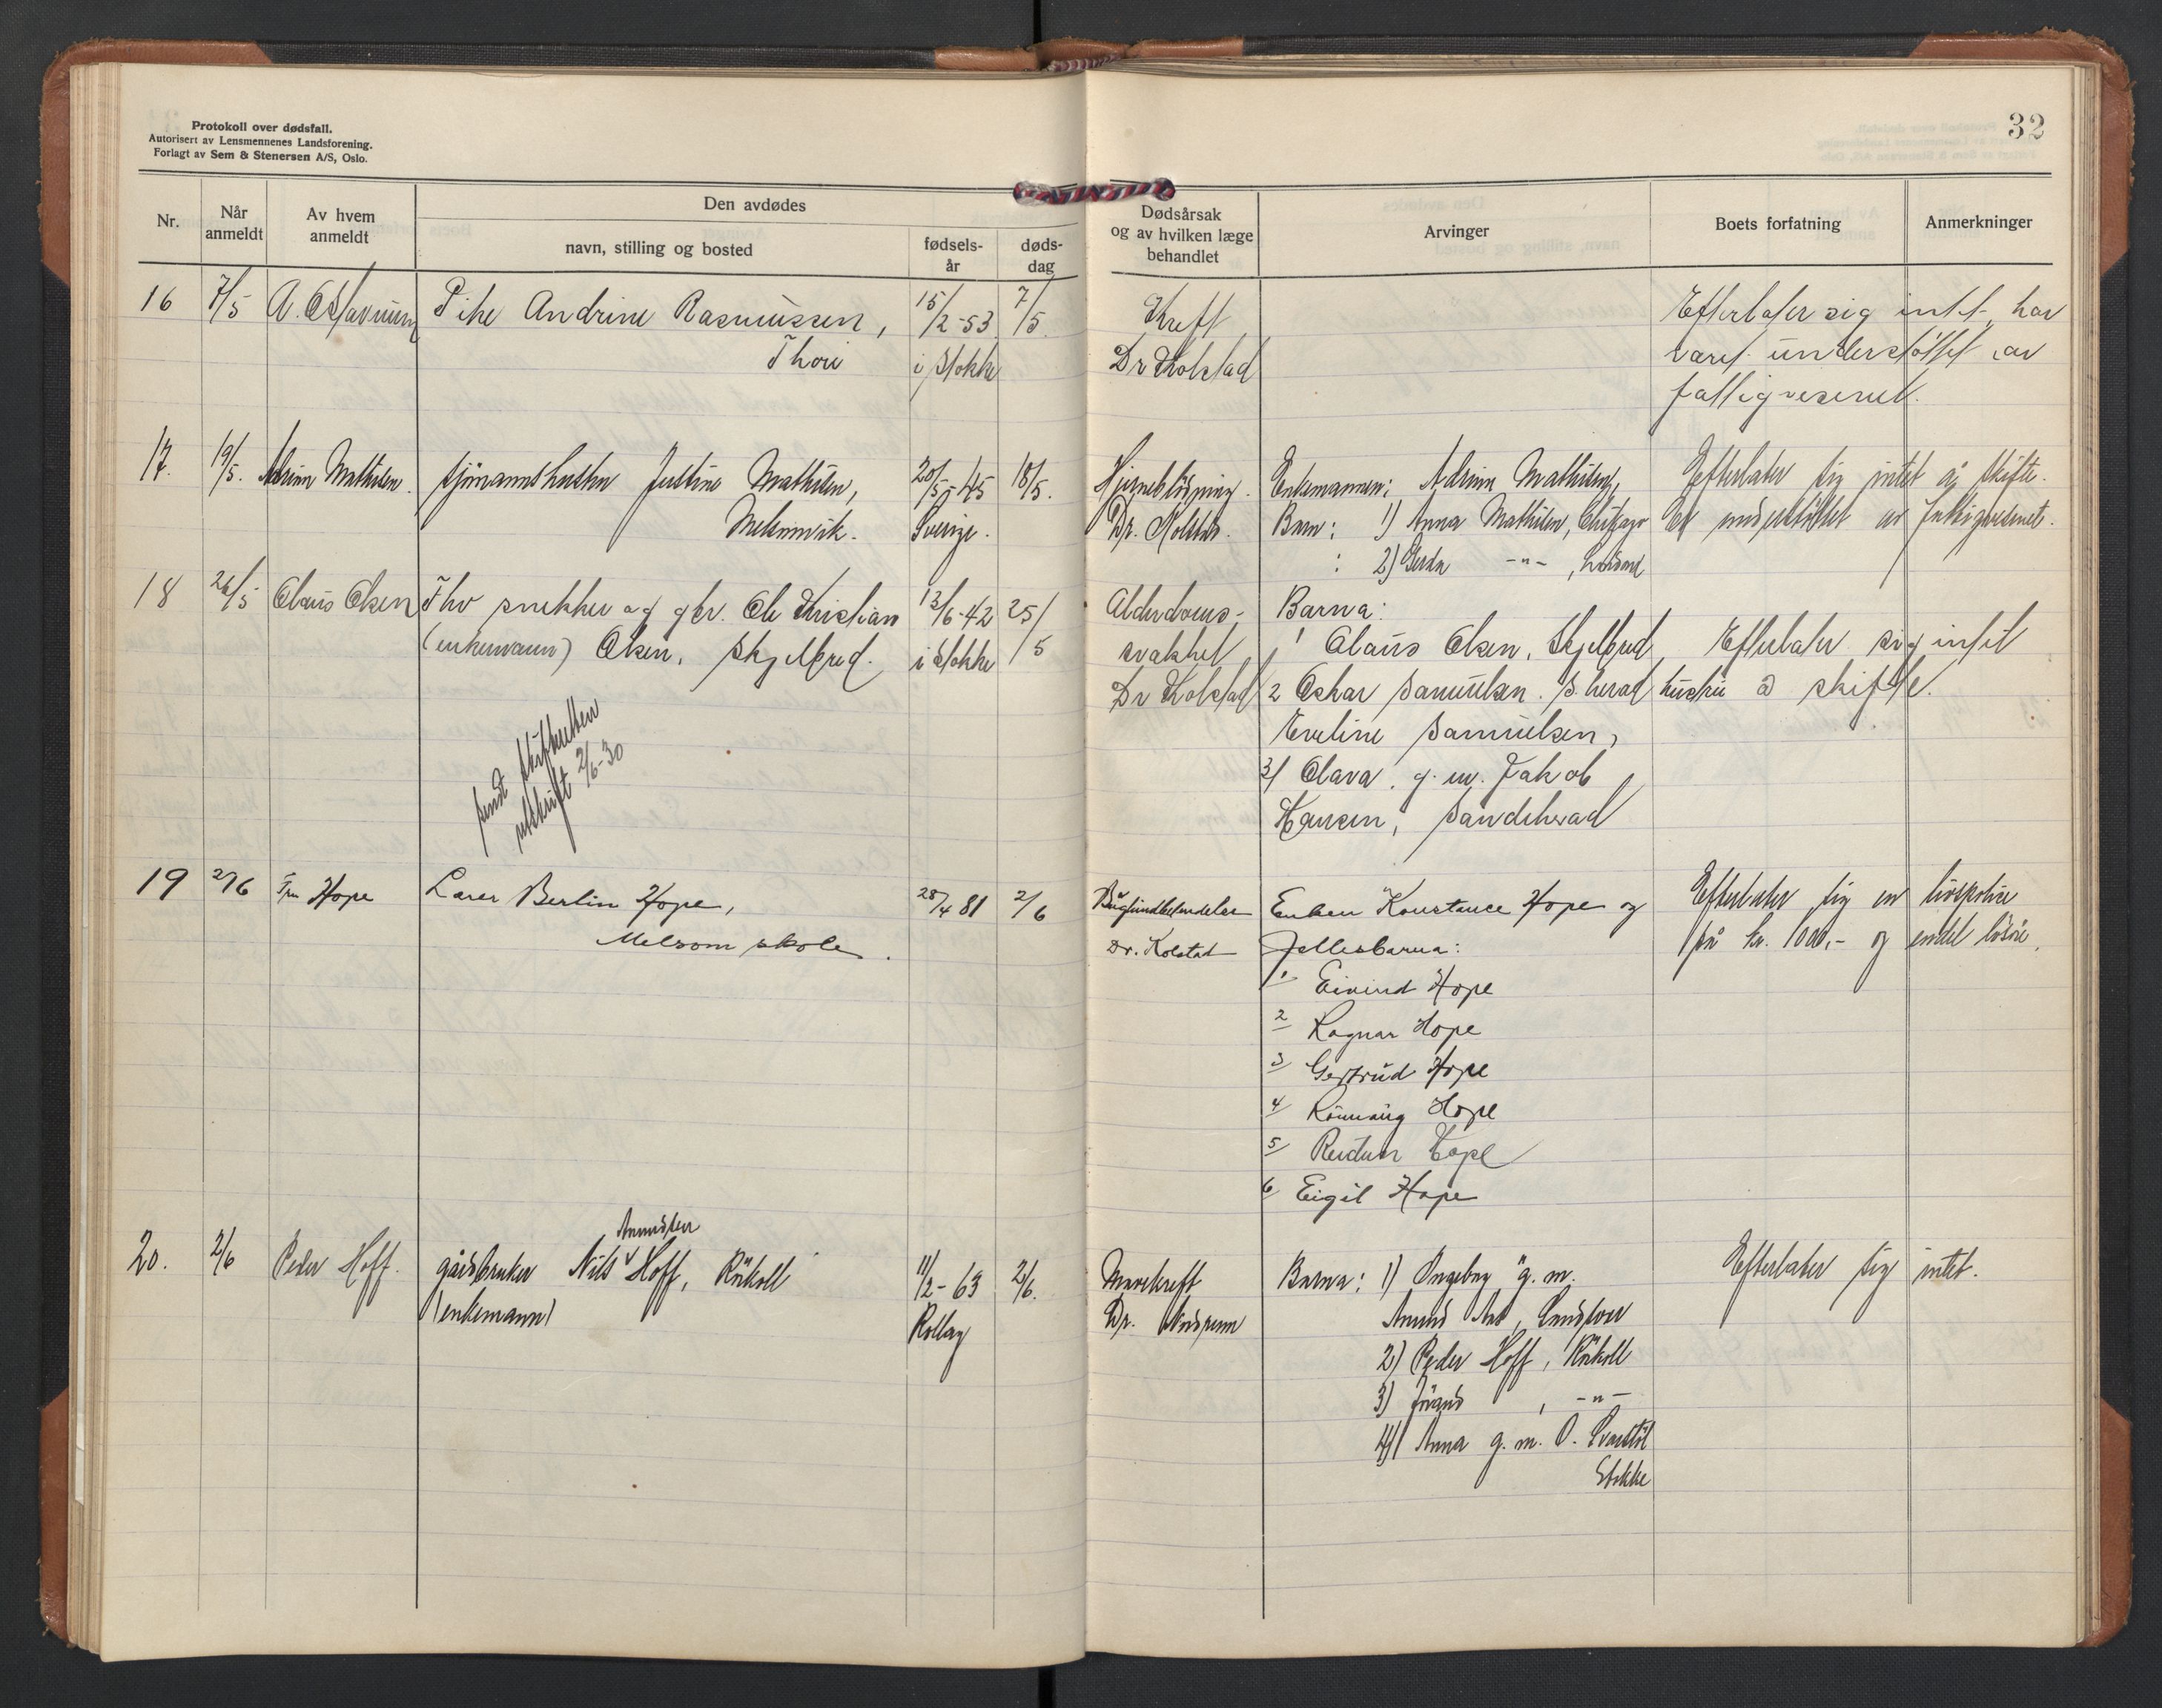 Protokoll over dødsfall.
Autorisert av Lensmennenes Landsforening.
Forlagt av Sem & Stenersen A/S, Oslo.
32
Nr.
Når anmeldt
Av hvem anmeldt
Den avdødes
navn, stilling og bosted
fødsels-år
døds-dag
Dødsårsak og av hvilken læge behandlet
Arvinger
Boets forfatning
Anmerkninger
16 7/5 A. Pike Andrine Rasmussen, 15/2-53 7/5 Kreft Efterlater sig intet, har
Thori i Stokke Dr Kolstad været understøttet av
fattigvesenet.
17. 19/5. Mathisen. sjømannshustru Justine Mathisen, 20/5-45 18/5. Hjerneblødning. Enkemannen: Mathisen, Efterlater sig intet å skifte.
Melsomvik. Sverige. Dr. Kolstad. Barn: 1) Anna Mathisen, Er understøttet av fattigvesenet.
: 2) Gerda -"-,
18 26/5 Claus Olsen Fhv snekker og gbr. Ole Kristian 13/6-42 25/5 Alderdoms- Barna:
(enkemann) Olsen, Skjelbred. i Stokke svakhet 1 Claus Olsen, Skjelbred, Efterlater sig intet
Dr Kolstad 2 Oskar Samuelsen. S.herad hustru å skifte.
Eveline Samuelsen,
3/ Olava g. m. Jakob
Hansen, Sandeherad
sendt skifteretten
utskrift 2/6-30
19 2/6 Fru Hope Lærer Berlin Hope, 28/4 81 2/6 Enken Konstance Hope og Efterlater sig en livspolise
Melsom skole. Dr. Kolstad Fellesbarna: på kr. 1000,- og endel løsøre.
1 Eivind Hope
2 Ragnar Hope
3 Gertrud Hope
4 Rønnaug Hope
5 Reidun Hope
6 Eigil Hope
Amundsen
20. 2/6 Peder Hoff. gårdbruker Nils Hoff, Råkoll 11/2-63 2/6. Mavekreft Barna: 1) Ingeborg g. m. Efterlater sig intet.
(enkemann) Rollag Dr. Amund
2) Peder Hoff, Råkoll
3) , -"-
4) Anna g. m. O.
Stokke